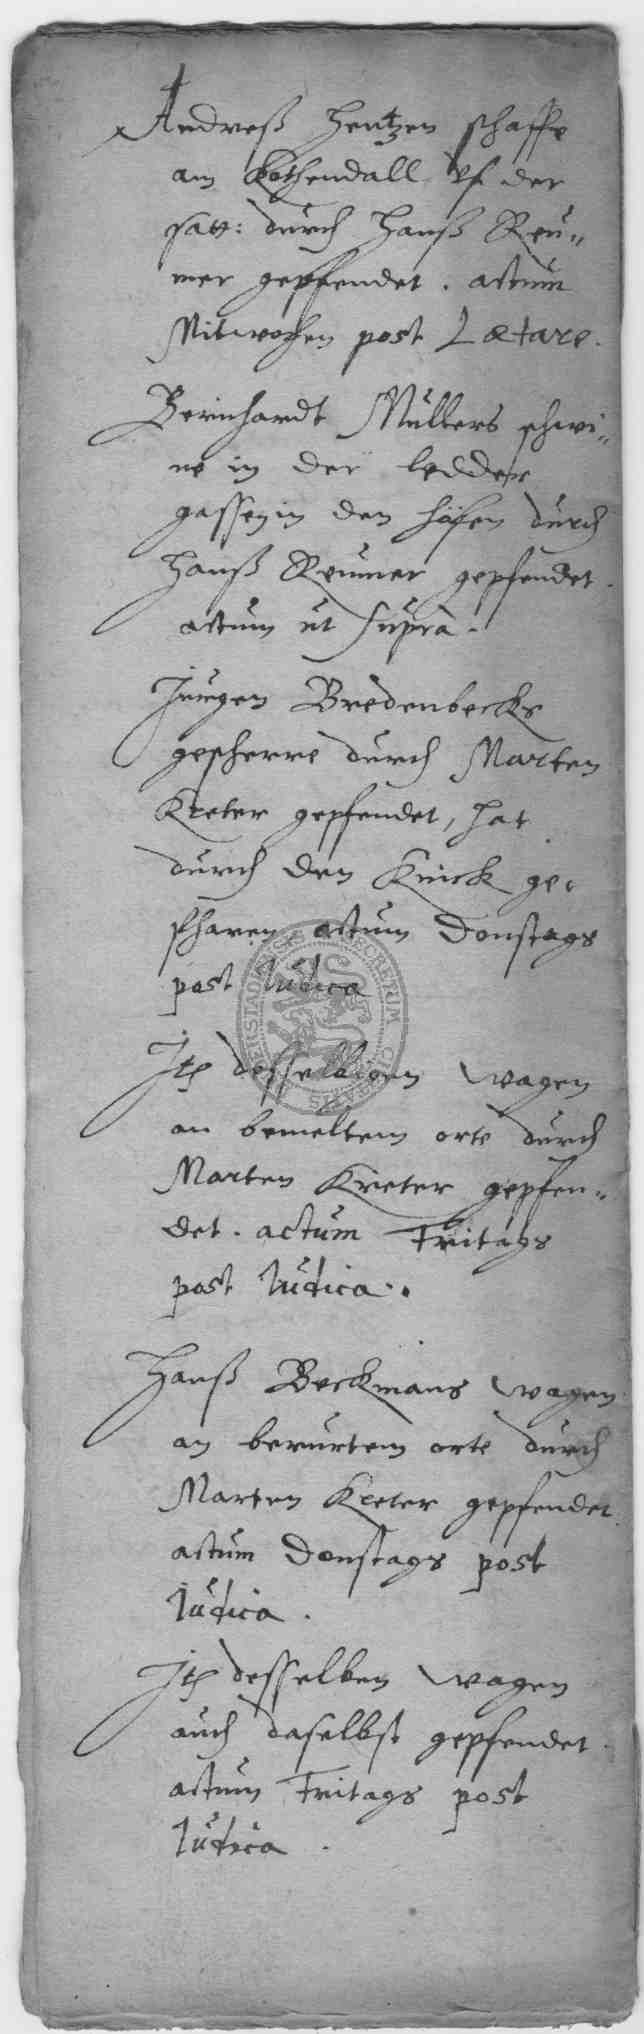 Andreß Hentzen schaffe
am Kothendall vf der
satt: durch Hanß Reu„
mer gepfendet. actum
Mitwochen post Lætare.
Bernhardt Mullers schwi„
ne in der ledder
gassen in den höfen durch
Hanß Reumer gepfendet.
actum ut supra.
Jurgen Bredenbecks
gescherre durch Marten
Kreter gepfendet, hat
durch den Knick ge„
schharen actum Donstags
post Iudica
Jtem desselbigen wagen
an bemeltem orte durch
Marten Kreter gepfen„
det. actum Fritags
post Iudica.
Hanß Beckmans wagen
an berurtem orte durch
Marten Kreter gepfendet.
actum Donstags post
Iudica.
Jtem desselben wagen
auch daselbst gepfendet.
actum Fritags post
Iudica.
SECRETUM CIVITATIS